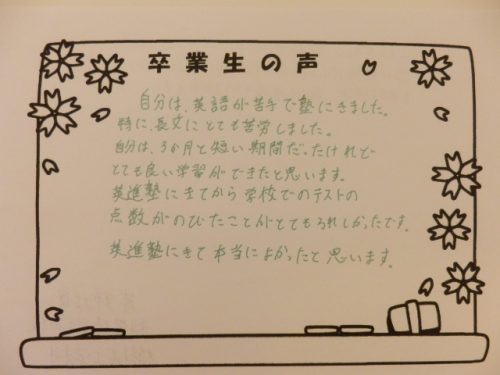 卒業生の声
自分は、英語が苦手で塾にきました。
特に、長文にとても苦労しました。
自分は、3か月と短い期間だったけれど
とても良い学習ができたと思います。
英進塾にきてから学校でのテストの
点数がのびたことがとてもうれしかったです。
英進塾にきて本当によかったと思います。